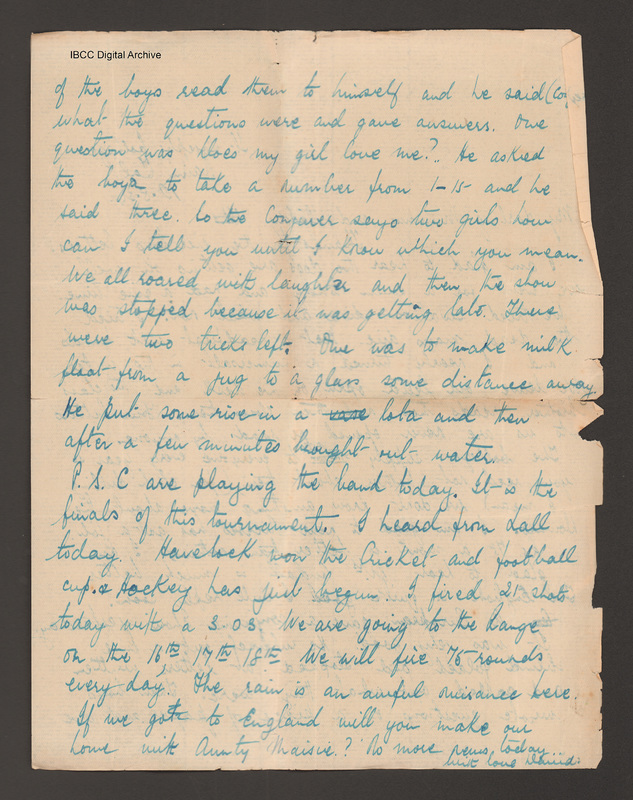 IBCC Digital Archive
of the boys read them to himself and he said (Con
what the questions were and gave answers. One
question was Does my girl love me?.. He asked
the boys to take a number from 1-15 and he
said three. So the Conjurer says two girls how
can I tell you until I know which you mean.
We all roared with laughter and then the show
was stopped because it was getting late. There
were two tricks left. One was to make milk
float from a jug to a glass some distance away
He put some rise in a vase lota and then
after a few minutes brought out water.
P.S.C are playing the band today. It is the
finals of this tournament. I heard from Lall
today. Havelock won the Cricket and football
cup. & Hockey has just begun. I fired 21 shots
today with a 303 We are going to the Range
on the 16th 17th 18th We will fire 75 rounds
every day. The rain is an awful nuisance here.
If we got to England will you make our
home with Aunty Maisie? No more news today
with love David.